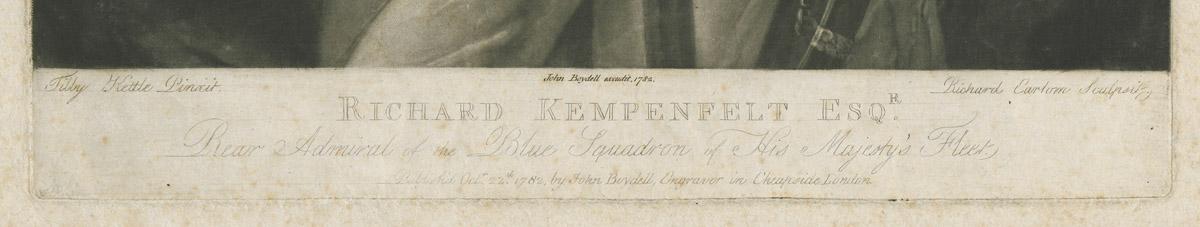 Tilly Kettle Pinxit. John Boydell excudit, 1782. Richard Earlom Sculpsit
RICHARD KEMPENFELT ESQ.R
Rear Admiral of the Blue Squadron of His Majesty's Fleet,
Publish'd Octr. 22d. 1782, by John Boydell, Engraver in Cheapside London.